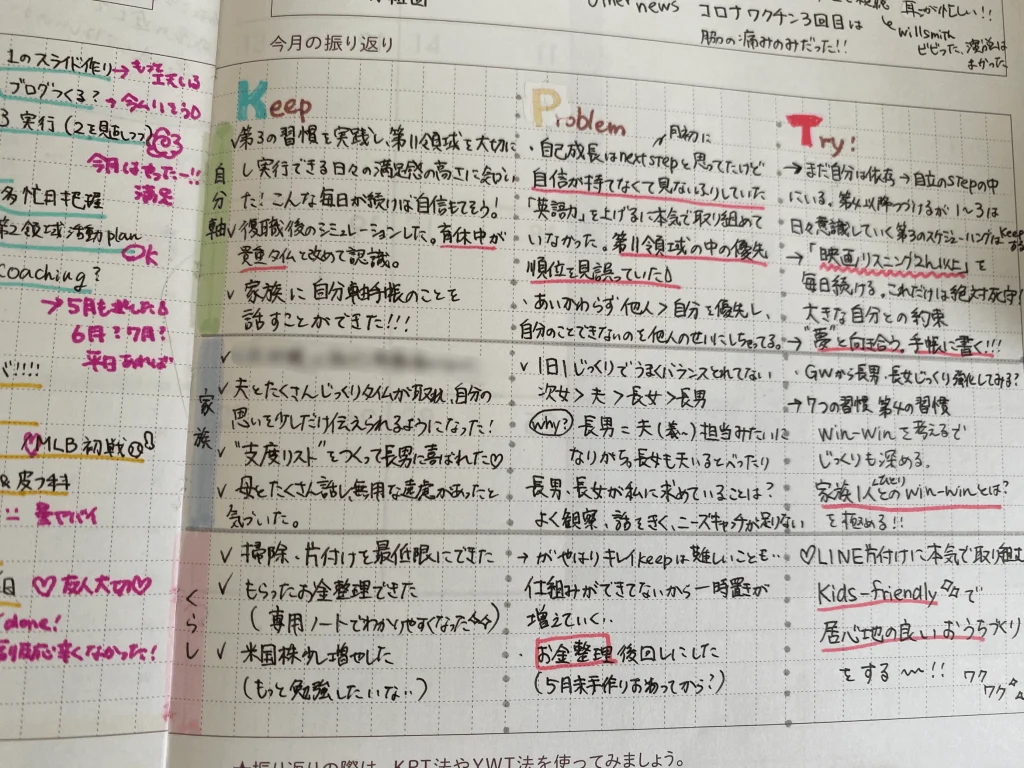 other news
コロナワクチン3回目は
腕の痛みのみだった!!
耳が忙しい!!
willsmith
1のスライド作り→もっと
工夫いる
ブログつくる?
3 実行(2を見直しつつ)
今月はやったー!!
満足
多忙月把握
第2領域活動plan
OK
coaching?
→5月も
6月?7月?
平日あれば
MLB初戦
友人大切♡
done!
今月の振り返り
Keep
自分軸
✓第3の習慣を実践し、第II領域を大切に
し実行できる日々の満足感の高さに気づい
た!こんな毎日が続けば自信もてそう!
✓復職後のシミュレーションした。育休中が
貴重タイムと改めて認識。
✓家族に自分軸手帳のことを
話すことができた!!!
Problem
月初に
・自己成長はnext stepと思ってたけど
自信が持てなくて見ないふりしていた
「英語力」を上げるに本気で取り組めて
いなかった。第II領域の中の優先
順位を見誤っていた
・あいかわらず他人>自分を優先し、
自分のことできないのを他人のせいにしちゃってる。
Try!
→まだ自分は依存→自立のstepの中
にいる。第4以降つづけるが1~3は
日々意識していく 第3のスケジューリングはkeep
→「映画リスニング2h以上」を
毎日続ける。これだけは絶対死守!
大きな自分との約束
→"夢"と向き合う。手帳に書く!!!
家族
✓
✓夫とたくさんじっくりタイムが取れ、自分の
思いを少しだけ伝えられるようになった!
✓"支度リスト"をつくって長男に喜ばれた♡
✓母とたくさん話し無用な遠慮があったと
気づいた。
✓1日1じっくりでうまくバランスとれてない
次女>夫>長女>長男
why? 長男=夫(義~)担当みたいに
なりがち。長女も夫いるとべったり
長男・長女が私に求めていることは?
よく観察、話をきく、ニーズキャッチが足りない
・GWから長男・長女じっくり強化してみる?
→7つの習慣 第4の習慣
win-winを考えるで
じっくりも深める。
ひとり
家族1人とのwin-winとは?
を極める!!
くらし
✓掃除・片付けを最低限にできた
✓もらったお金整理できた
(専用ノートでわかりやすくなった)
✓米国株少し増やした
(もっと勉強したいな..)
→がやはりキレイkeepは難しいことも..
仕組みができてないから一時置きが
増えていく..
・お金整理後回しにした
(5月末手作りおわってから?)
♡LINE片付けに本気で取り組む
Kids-friendlyで
居心地の良いおうちづくり
をする〜!!
ワクワク
★振り返りの際は、KPT法やYWT法を使ってみましょう。